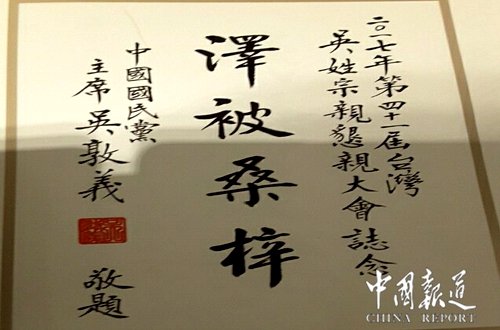 二〇一七年第四十一屆台灣
吳姓宗親懇親大會誌念
澤被桑梓
中國國民黨
主席吳敦義
敬題
中國報道
CHINA REPORT